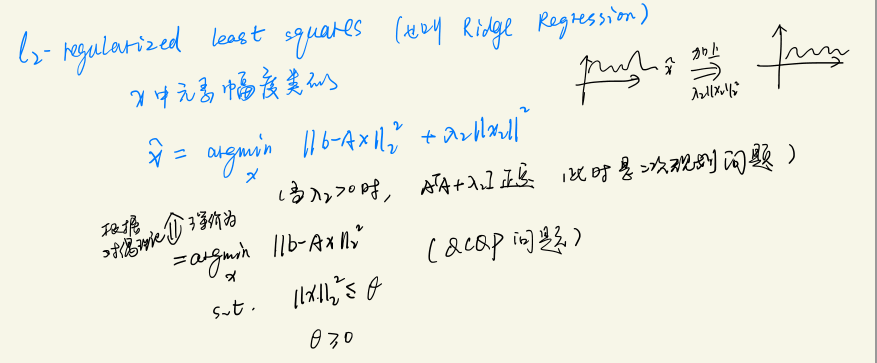 l₂-regularized least squares (也叫 Ridge Regression)
x中元素幅度类似
x̂ 加上 ⇒ λ₂||x||₂²
x̂ = argmin_x ||b-Ax||₂² + λ₂||x₂||²
(当λ₂>0时, AᵀA+λ₂I 正定 此时是二次规划问题)
根据对偶理论 ⇕ 等价为
= argmin_x ||b-Ax||₂² (QCQP问题)
s.t. ||x||₂² ≤ θ
θ≥0